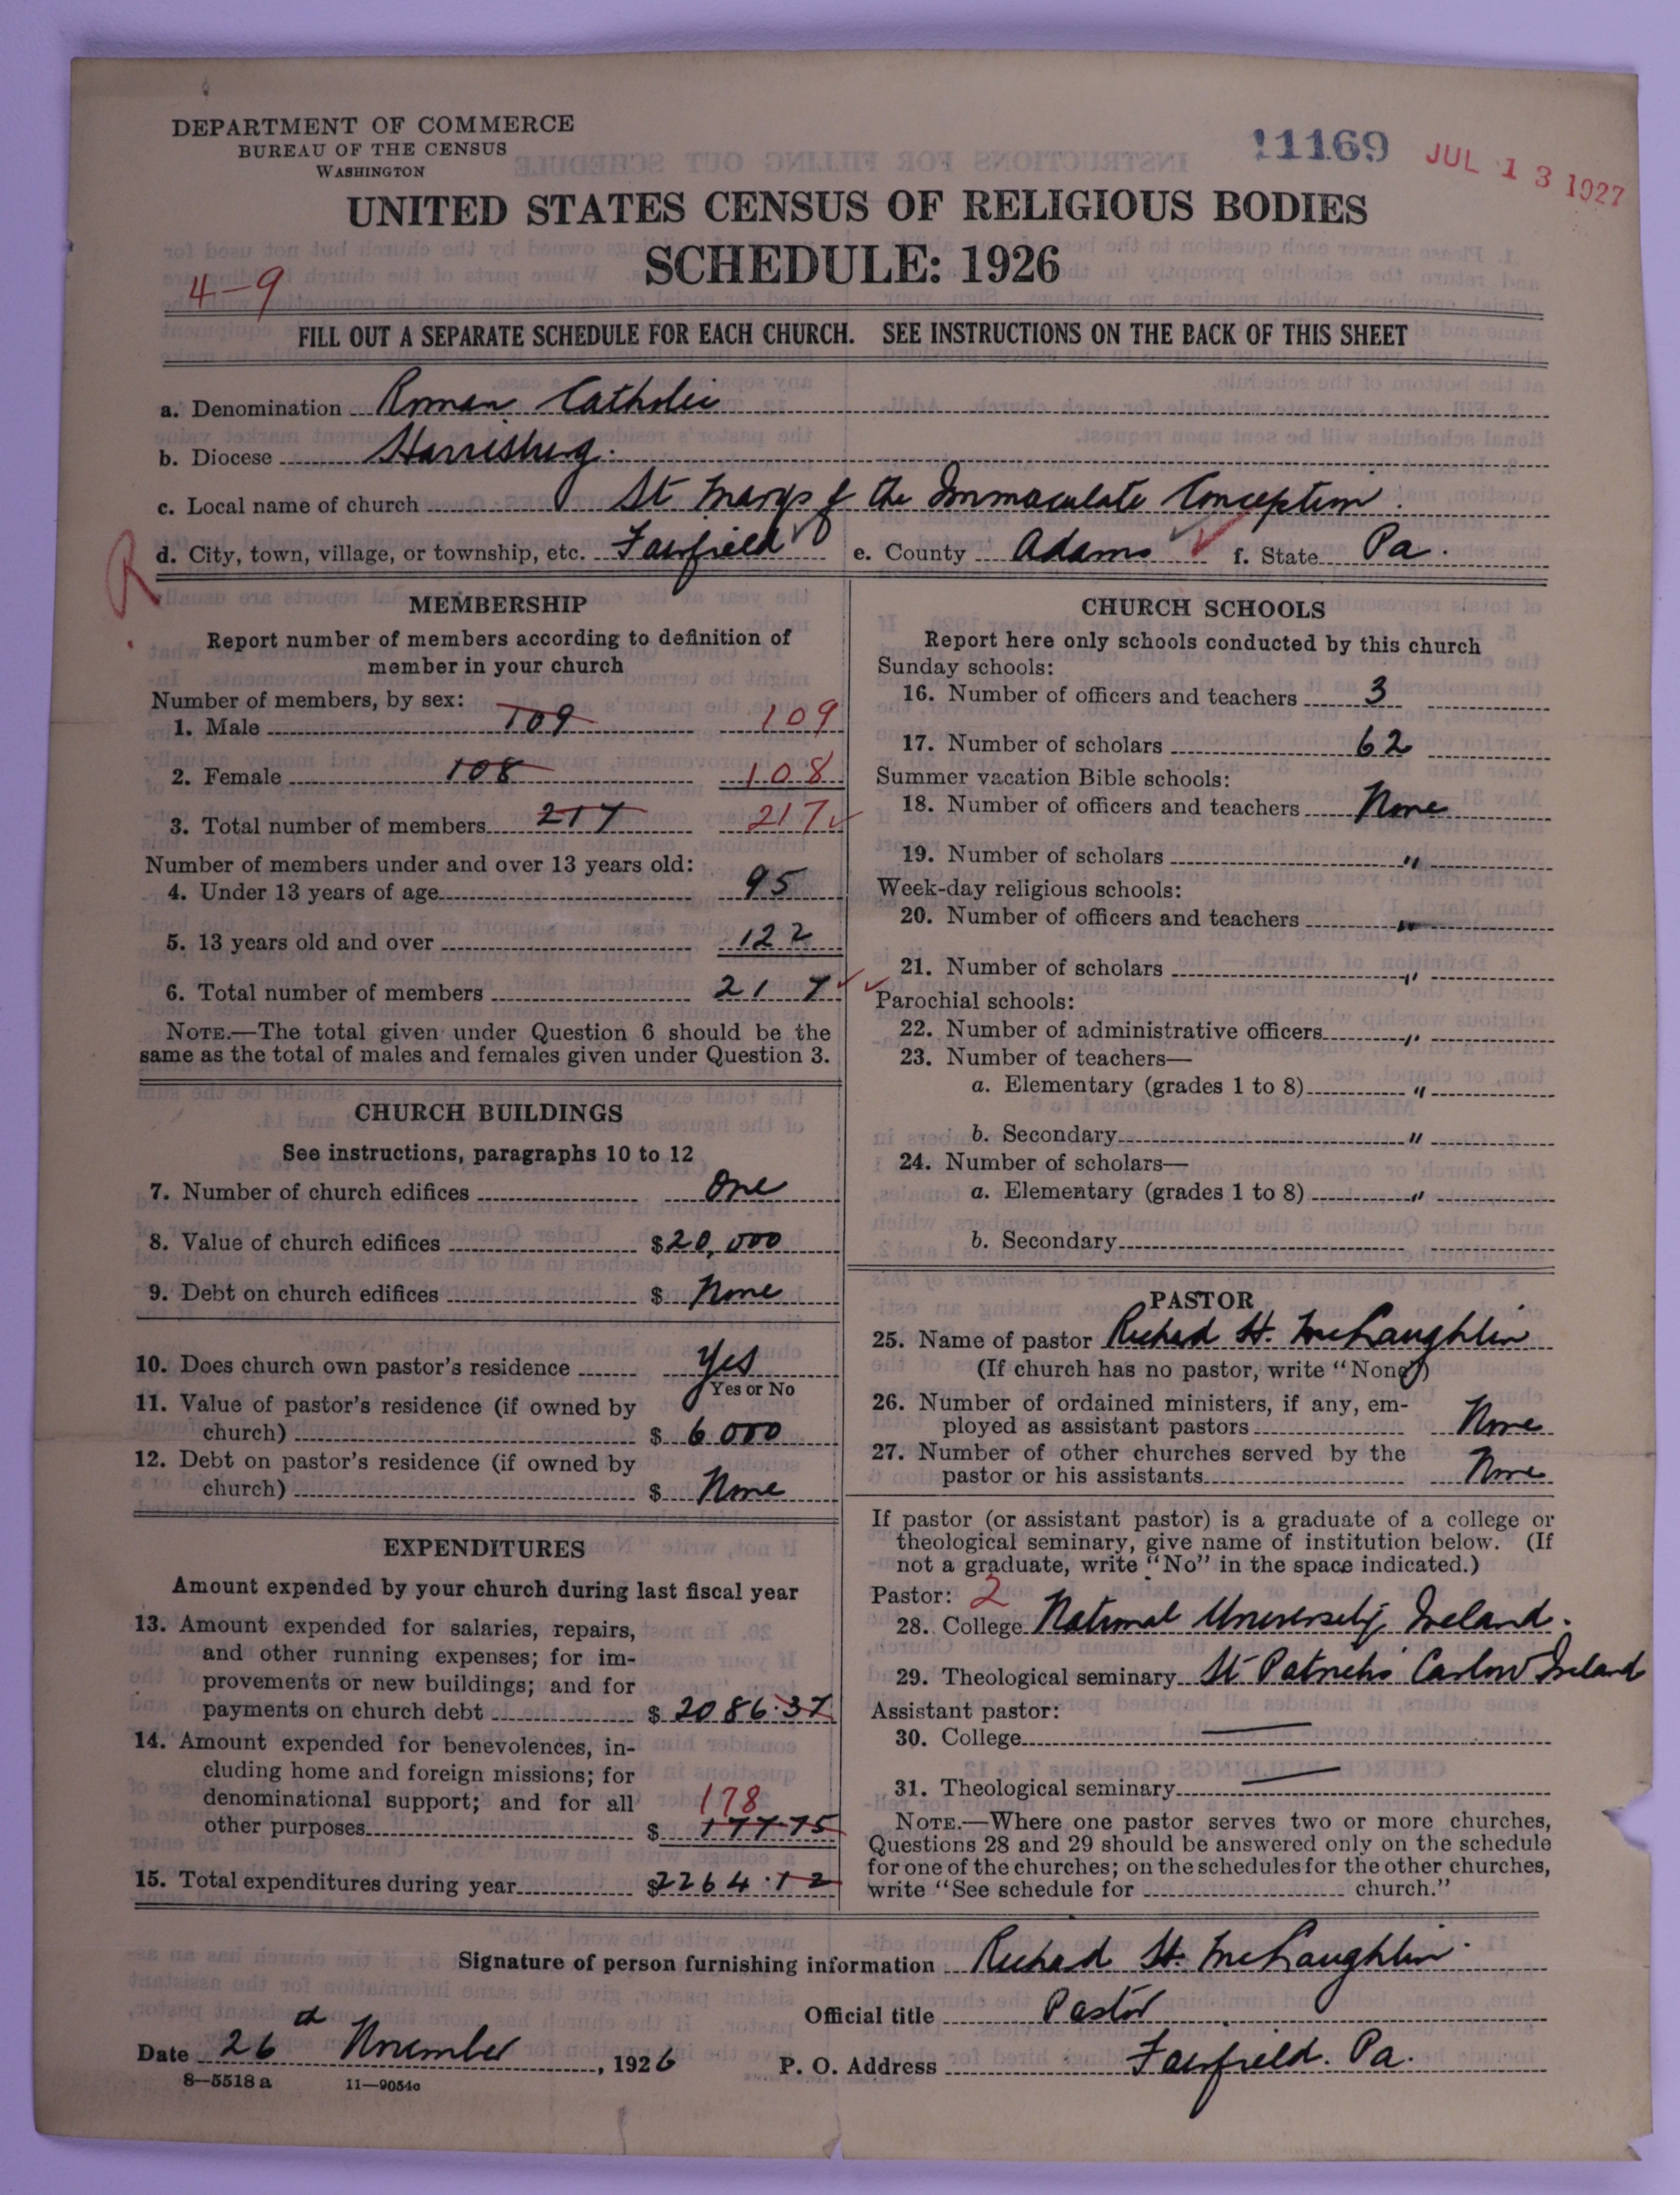 DEPARTMENT OF COMMERCE
BUREAU OF THE CENSUS
WASHINGTON
11169
JUL 13 1927
UNITED STATES CENSUS OF RELIGIOUS BODIES
SCHEDULE: 1926
4-9
FILL OUT A SEPARATE SCHEDULE FOR EACH CHURCH. SEE INSTRUCTIONS ON THE BACK OF THIS SHEET
a. Denomination Roman Catholic
b. Diocese Harrisburg.
c. Local name of church St Marys of the Immaculate Conception.
R d. City, town, village, or township, etc. Fairfield e. County Adams f. State Pa.
MEMBERSHIP
Report number of members according to definition of
member in your church
Number of members, by sex:
1. Male 109 109
2. Female 108 108
3. Total number of members 217 217
Number of members under and over 13 years old:
4. Under 13 years of age 95
5. 13 years old and over 122
6. Total number of members 217
NOTE.—The total given under Question 6 should be the
same as the total of males and females given under Question 3.
CHURCH BUILDINGS
See instructions, paragraphs 10 to 12
7. Number of church edifices One
8. Value of church edifices $20,000
9. Debt on church edifices $ None
10. Does church own pastor's residence Yes
Yes or No
11. Value of pastor's residence (if owned by
church) $ 6.000
12. Debt on pastor's residence (if owned by
church) $ None
EXPENDITURES
Amount expended by your church during last fiscal year
13. Amount expended for salaries, repairs,
and other running expenses; for im-
provements or new buildings; and for
payments on church debt $ 2086.37
14. Amount expended for benevolences, in-
cluding home and foreign missions; for
denominational support; and for all 178
other purposes $ 177.75
15. Total expenditures during year $2264.12
CHURCH SCHOOLS
Report here only schools conducted by this church
Sunday schools:
16. Number of officers and teachers 3
17. Number of scholars 62
Summer vacation Bible schools:
18. Number of officers and teachers None
19. Number of scholars "
Week-day religious schools:
20. Number of officers and teachers "
21. Number of scholars "
Parochial schools:
22. Number of administrative officers "
23. Number of teachers—
a. Elementary (grades 1 to 8) "
b. Secondary "
24. Number of scholars—
a. Elementary (grades 1 to 8) "
b. Secondary
PASTOR
25. Name of pastor Richard H. McLaughlin
(If church has no pastor, write "None")
26. Number of ordained ministers, if any, em-
ployed as assistant pastors None
27. Number of other churches served by the
pastor or his assistants None
If pastor (or assistant pastor) is a graduate of a college or
theological seminary, give name of institution below. (If
not a graduate, write "No" in the space indicated.)
Pastor: 2
28. College National University Ireland.
29. Theological seminary St Patricks Carlow Ireland
Assistant pastor:
30. College —
31. Theological seminary —
NOTE.—Where one pastor serves two or more churches,
Questions 28 and 29 should be answered only on the schedule
for one of the churches; on the schedules for the other churches,
write "See schedule for church."
Signature of person furnishing information Richard H. McLaughlin.
Official title Pastor
Date 26th November, 1926 P. O. Address Fairfield. Pa.
8—5518 a 11—9054c